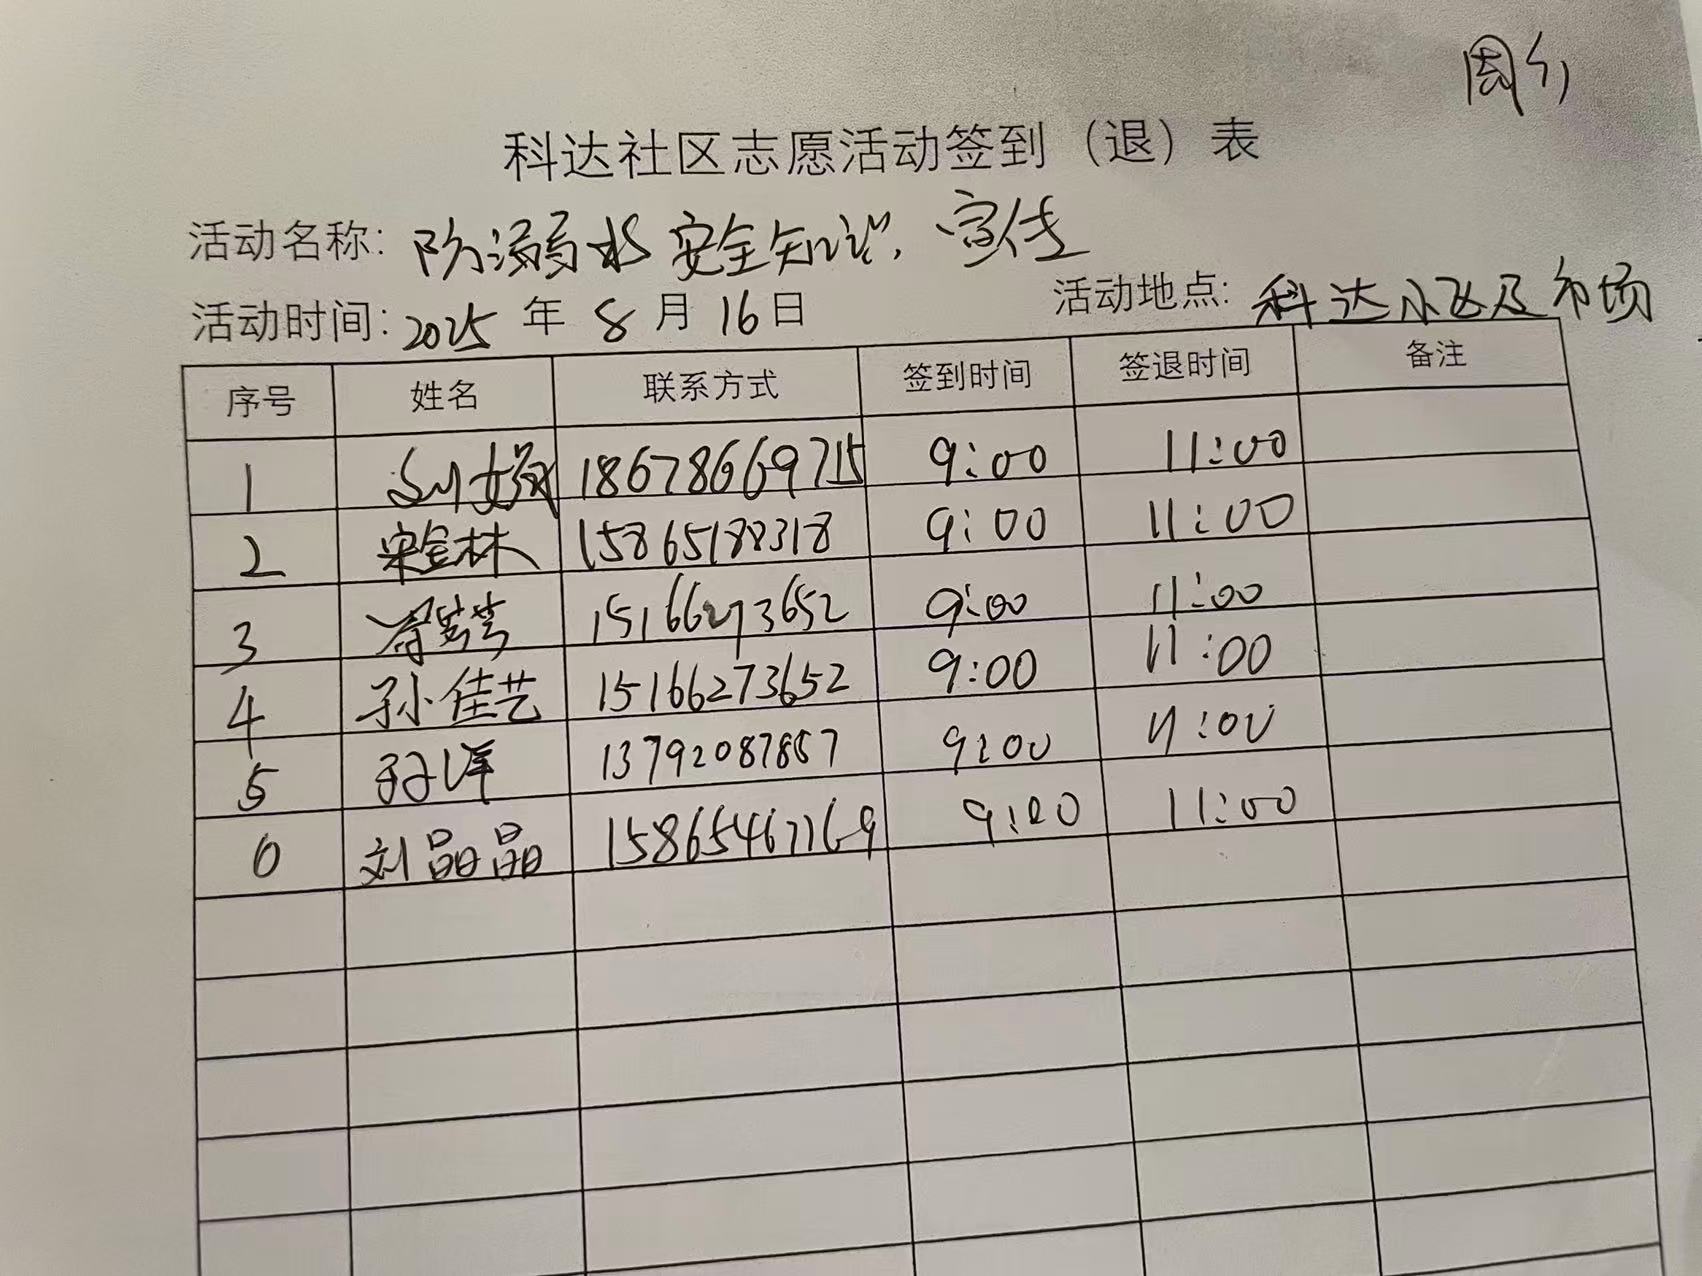 周
科达社区志愿活动签到（退）表
活动名称: 防溺水安全知识宣传
活动时间: 2025年8月16日 活动地点: 科达小区及市场
序号 姓名 联系方式 签到时间 签退时间 备注
1 刘 18678669715 9:00 11:00
2 宋金林 15865188318 9:00 11:00
3 15166273652 9:00 11:00
4 孙佳艺 15166273652 9:00 11:00
5 孙洋 13792087857 9:00 11:00
6 刘晶晶 15865467169 9:00 11:00